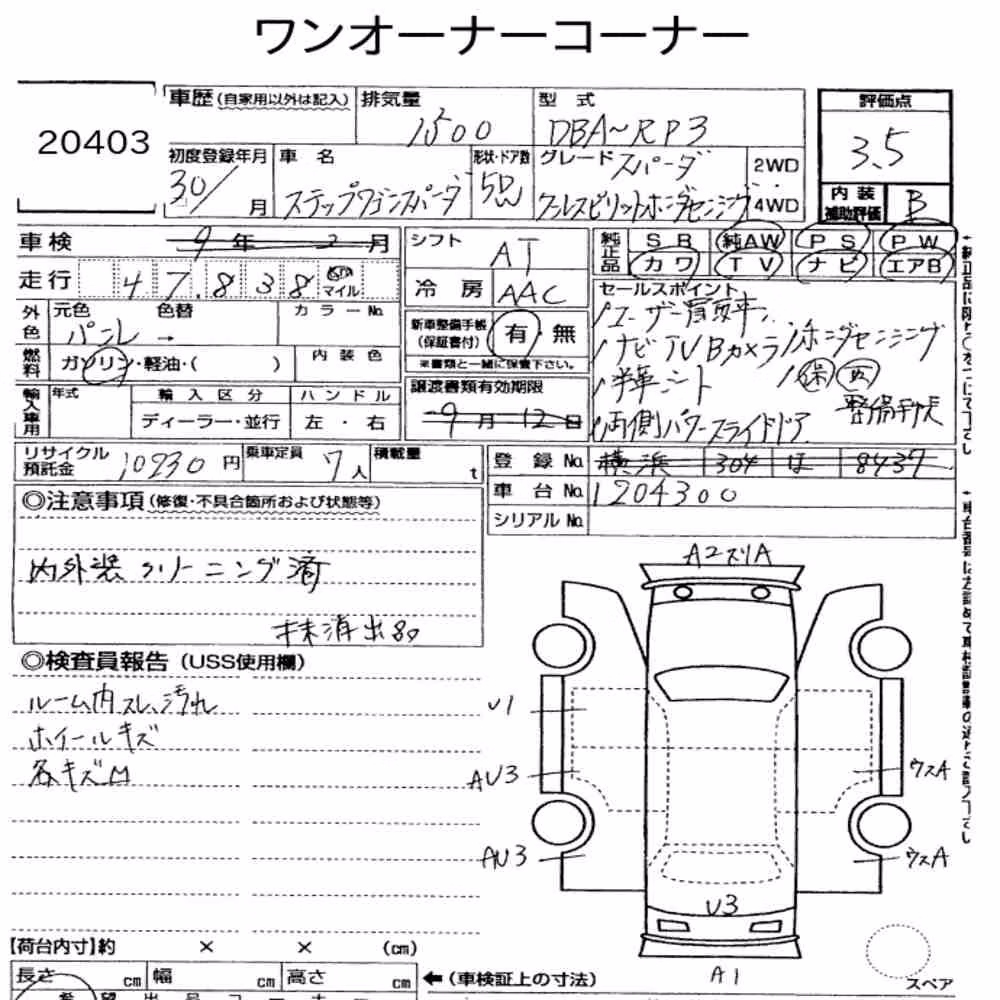 ワンオーナーコーナー
20403
車歴 (自家用以外は記入) 排気量 型式 評価点
1500 DBA~RP3 3.5
初度登録年月 車名 形状・ドア数 グレード スパーダ 2WD
30/ 月 ステップワゴンスパーダ 5D クールスピリットホンダセンシング 4WD
内装補助評価 B
車検 9年2月 シフト AT 純正品 SR 純AW PS PW
カワ TV ナビ エアB
走行 47,838 km マイル 冷房 AAC
セールスポイント
外色 元色 色替 カラーNo.
パール →
/ユーザー買取車
/ナビTVBカメラ/ホンダセンシング
/半革シート /保 取
整備手帳
/両側パワースライドドア
新車整備手帳 (保証書付) 有・無
※書類と一緒に保管下さい。
燃料 ガソリン・軽油・( ) 内装色
譲渡書類有効期限
9月12日
輸入車用 年式 輸入区分 ハンドル
ディーラー・並行 左・右
リサイクル預託金 10930円 乗車定員 7人 積載量 t
登録No. 横浜 304 ほ 8437
車台No. 1204300
シリアルNo.
◎注意事項 (修復・不具合箇所および状態等)
内外装クリーニング済
抹消出品
◎検査員報告 (USS使用欄)
ルーム内スレ、汚れ
ホイールキズ
各キズM
A2スリA
U1
AU3
ウスA
AU3
ウスA
U3
A1
スペア
【荷台内寸】約 × × (cm)
長さ cm 幅 cm 高さ cm ←(車検証上の寸法)
希望出品コーナー